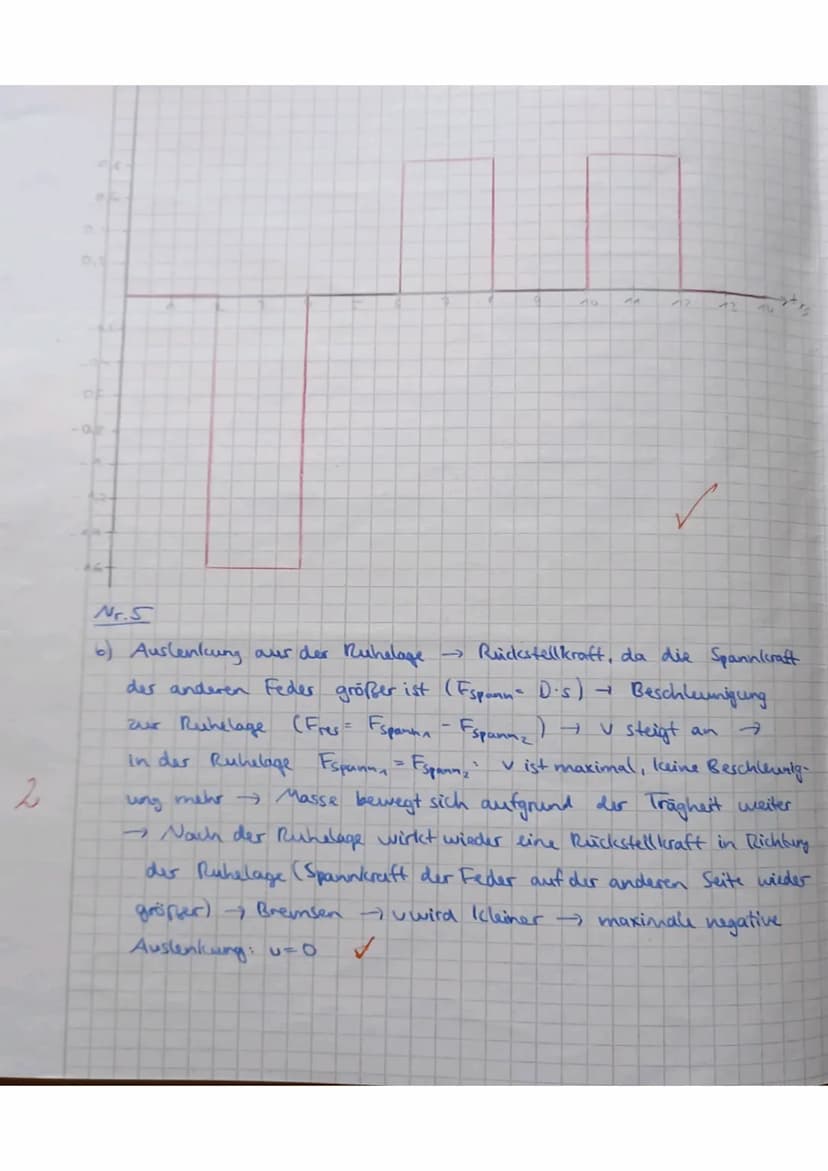 6 7 8 9 10 11 12 13 14 t
Nr. 5
b) Auslenkung aus der Ruhelage → Rückstellkraft, da die Spannkraft
der anderen Feder größer ist (Fspann = D·s) → Beschleunigung
zur Ruhelage (Fres = Fspann₁ - Fspann₂) → v steigt an →
in der Ruhelage Fspann₁ = Fspann₂: v ist maximal, keine Beschleunig-
2 ung mehr → Masse bewegt sich aufgrund der Trägheit weiter
→ Nach der Ruhelage wirkt wieder eine Rückstellkraft in Richtung
der Ruhelage (Spannkraft der Feder auf der anderen Seite wieder
größer) → Bremsen → v wird kleiner → maximale negative
Auslenkung: v=0